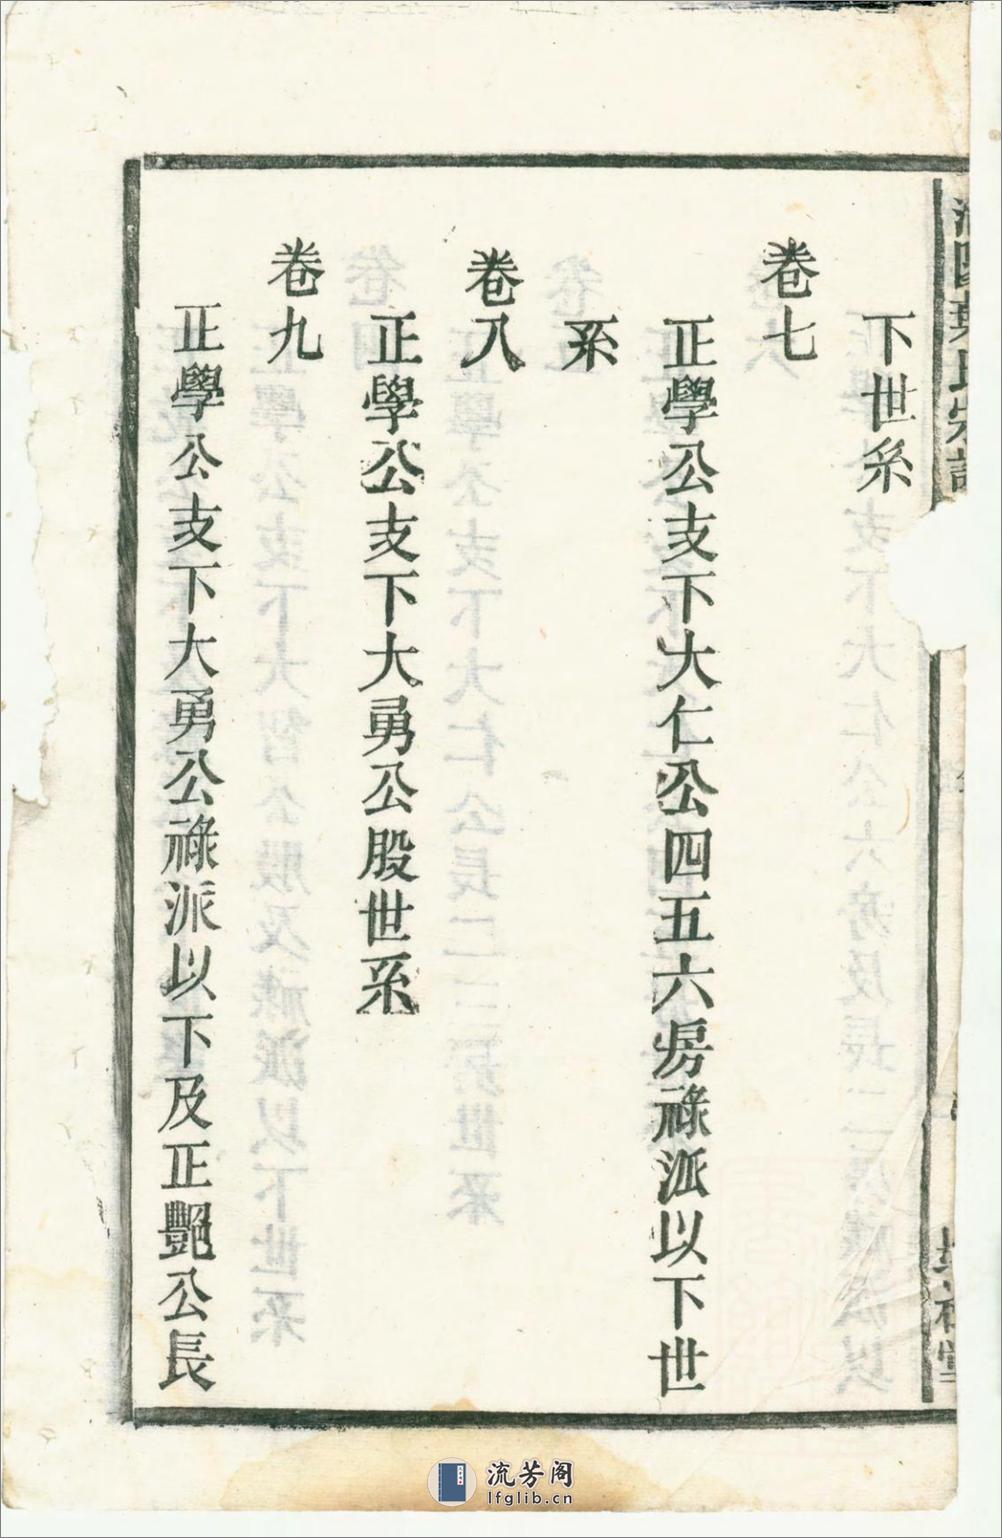 下世系
卷七
正學公支下大仁公四五六房祿派以下世
系
卷八
正學公支下大勇公股世系
卷九
正學公支下大勇公祿派以下及正艷公長
葉氏宗譜
堂
流芳阁
lfglib.cn